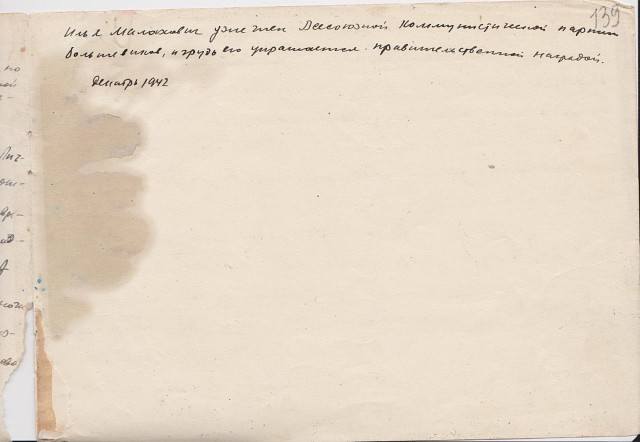 139
Илья Малахович уже член Всесоюзной Коммунистической партии
большевиков, и грудь его украшается правительственной наградой.
декабрь 1942